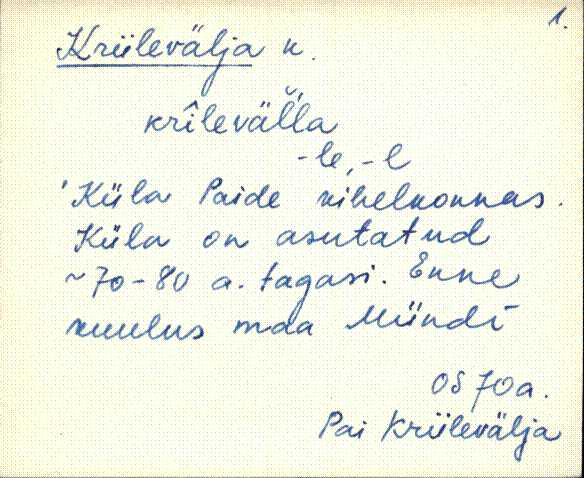 1.
Kriilevälja k.
krîleväľľa
-le, -l
'Küla Paide kihelkonnas.
Küla on asutatud
~70-80 a. tagasi. Enne
kuulus maa Mündi
OS 70a.
Pai Kriilevälja